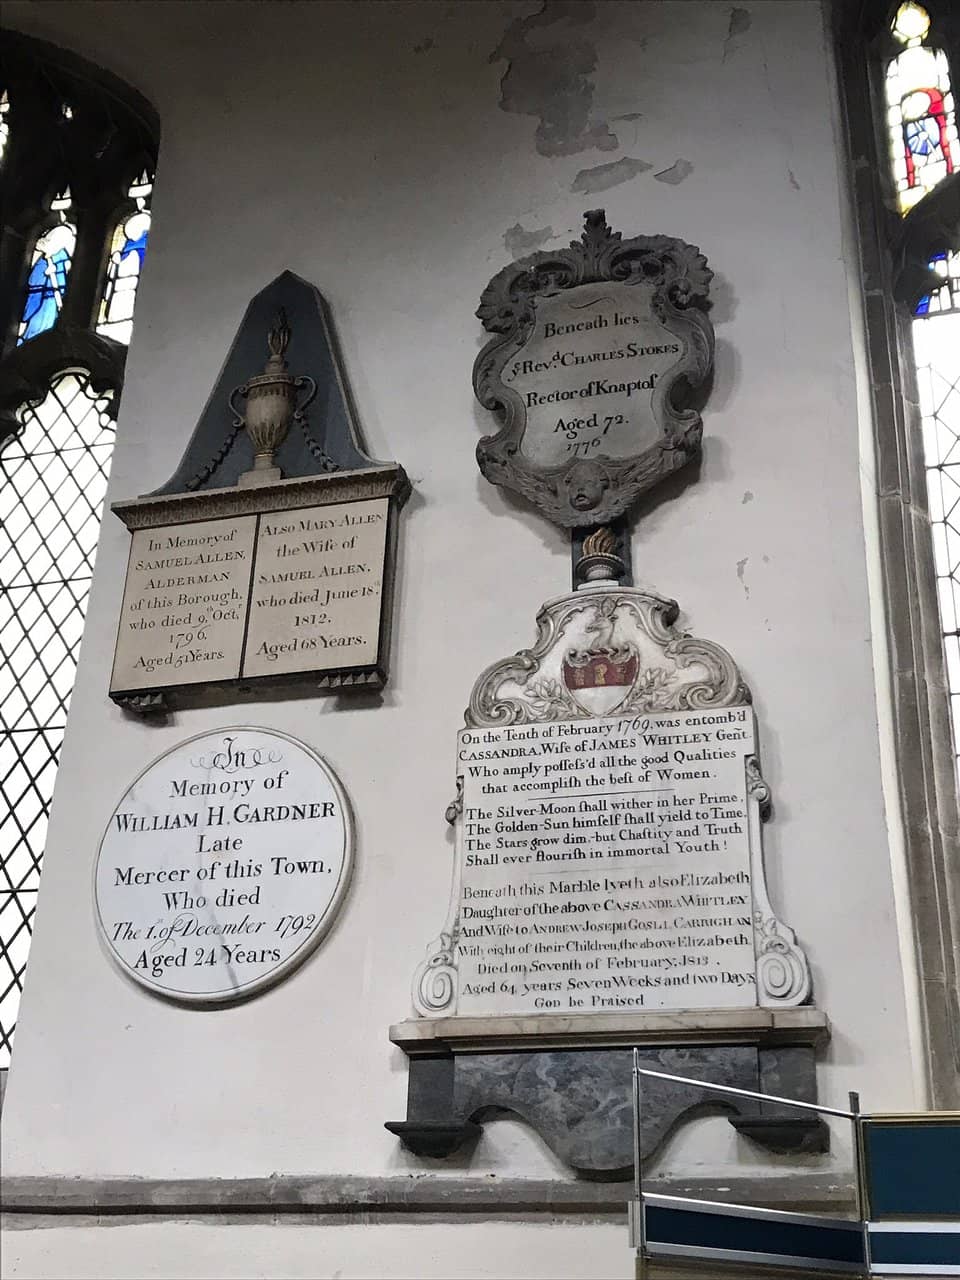 Beneath lies
yᵉ Revᵈ. CHARLES STOKES
Rector of Knaptof
Aged 72.
1776
In Memory of
SAMUEL ALLEN,
ALDERMAN
of this Borough,
who died 9th. Octr.
1796.
Aged 51 Years.
ALSO MARY ALLEN
the Wife of
SAMUEL ALLEN,
who died June 18th.
1812.
Aged 68 Years.
In
Memory of
WILLIAM H. GARDNER
Late
Mercer of this Town,
Who died
The 1st. of December 1792
Aged 24 Years
On the Tenth of February 1769, was entomb'd
CASSANDRA, Wife of JAMES WHITLEY Gent.
Who amply poſſeſs'd all the good Qualities
that accompliſh the beſt of Women.
The Silver-Moon ſhall wither in her Prime,
The Golden-Sun himſelf ſhall yield to Time,
The Stars grow dim,-but Chaſtity and Truth
Shall ever flouriſh in immortal Youth!
Beneath this Marble lyeth also Elizabeth
Daughter of the above CASSANDRA WHITLEY
And Wife to ANDREW JOSEPH GOSLI. CARRIGHAN
With eight of their Children, the above Elizabeth
Died on Seventh of February, 1813.
Aged 64, years Seven Weeks and two Days
GOD be Praised.